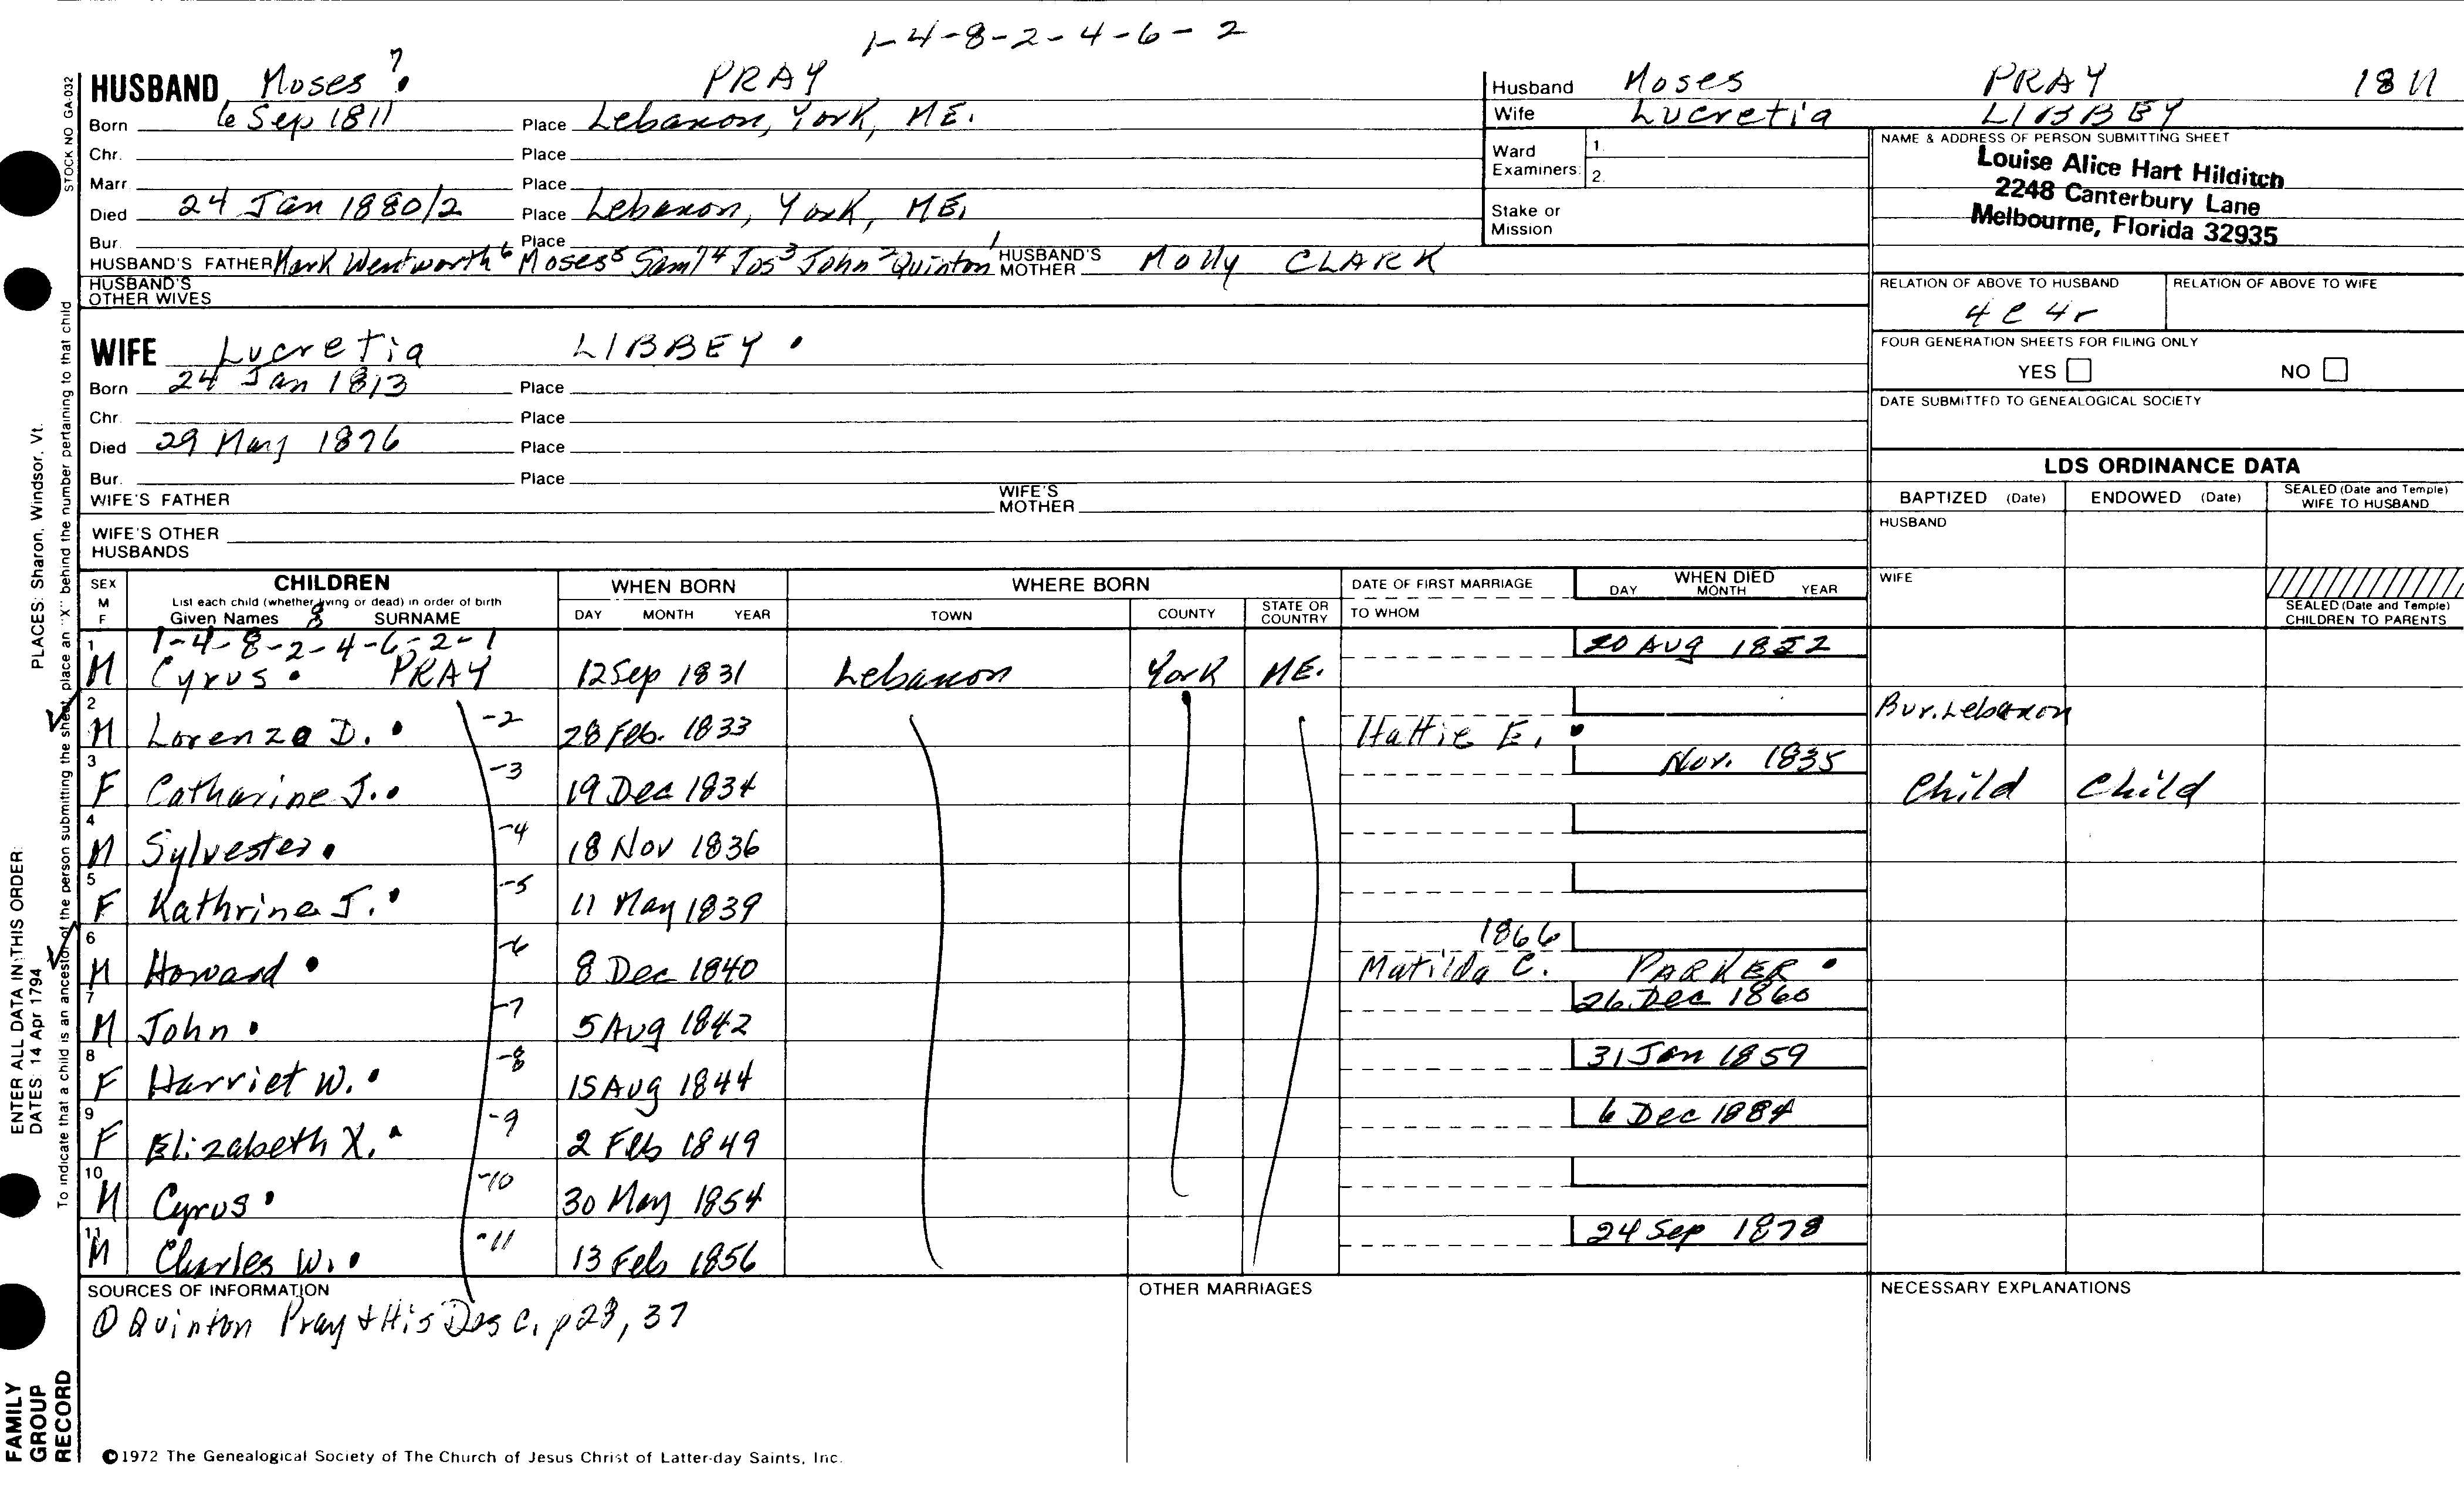 1-4-8-2-4-6-2
HUSBAND Moses 7. PRAY
Born 6 Sep 1811 Place Lebanon, York, ME.
Chr. Place
Marr. Place
Died 24 Jan 1880/2 Place Lebanon, York, ME.
Bur. Place
HUSBAND'S FATHER Mark Wentworth 6 Moses 5 Sam'l 4 Jos 3 John 2 Quinton 1 HUSBAND'S MOTHER Molly CLARK
HUSBAND'S OTHER WIVES
WIFE Lucretia LIBBEY.
Born 24 Jan 1813 Place
Chr. Place
Died 29 May 1876 Place
Bur. Place
WIFE'S FATHER WIFE'S MOTHER
WIFE'S OTHER HUSBANDS
Husband Moses PRAY 1811
Wife Lucretia LIBBEY
Ward Examiners: 1.
2.
Stake or Mission
NAME & ADDRESS OF PERSON SUBMITTING SHEET
Louise Alice Hart Hilditch
2248 Canterbury Lane
Melbourne, Florida 32935
RELATION OF ABOVE TO HUSBAND RELATION OF ABOVE TO WIFE
4 C 4r
FOUR GENERATION SHEETS FOR FILING ONLY
YES NO
DATE SUBMITTED TO GENEALOGICAL SOCIETY
LDS ORDINANCE DATA
BAPTIZED (Date) ENDOWED (Date) SEALED (Date and Temple) WIFE TO HUSBAND
HUSBAND
WIFE
SEALED (Date and Temple) CHILDREN TO PARENTS
SEX M F CHILDREN WHEN BORN WHERE BORN DATE OF FIRST MARRIAGE WHEN DIED
List each child (whether living or dead) in order of birth DAY MONTH YEAR
Given Names SURNAME DAY MONTH YEAR TOWN COUNTY STATE OR COUNTRY TO WHOM
1-4-8-2-4-6-2-1 20 Aug 1852
1 M Cyrus. PRAY 12 Sep 1831 Lebanon York ME.
2 M Lorenzo D. -2 28 Feb. 1833 Hattie E. Bur. Lebanon
3 F Catharine J. -3 19 Dec 1834 Nov. 1835 Child Child
4 M Sylvester. -4 18 Nov 1836
5 F Kathrine J. -5 11 May 1839
6 M Howard -6 8 Dec 1840 1866 Matilda C. PARKER
7 M John -7 5 Aug 1842 26 Dec 1860
8 F Harriet W. -8 15 Aug 1844 31 Jan 1859
9 F Elizabeth X. -9 2 Feb 1849 6 Dec 1884
10 M Cyrus -10 30 May 1854
11 M Charles W. -11 13 Feb 1856 24 Sep 1878
SOURCES OF INFORMATION OTHER MARRIAGES NECESSARY EXPLANATIONS
① Quinton Pray & His Desc. p 28, 37
©1972 The Genealogical Society of The Church of Jesus Christ of Latter-day Saints, Inc.
STOCK NO GA-032
To indicate that a child is an ancestor of the person submitting the sheet, place an "X" behind the number pertaining to that child
PLACES: Sharon, Windsor, Vt.
ENTER ALL DATA IN THIS ORDER:
DATES: 14 Apr 1794
FAMILY
GROUP
RECORD